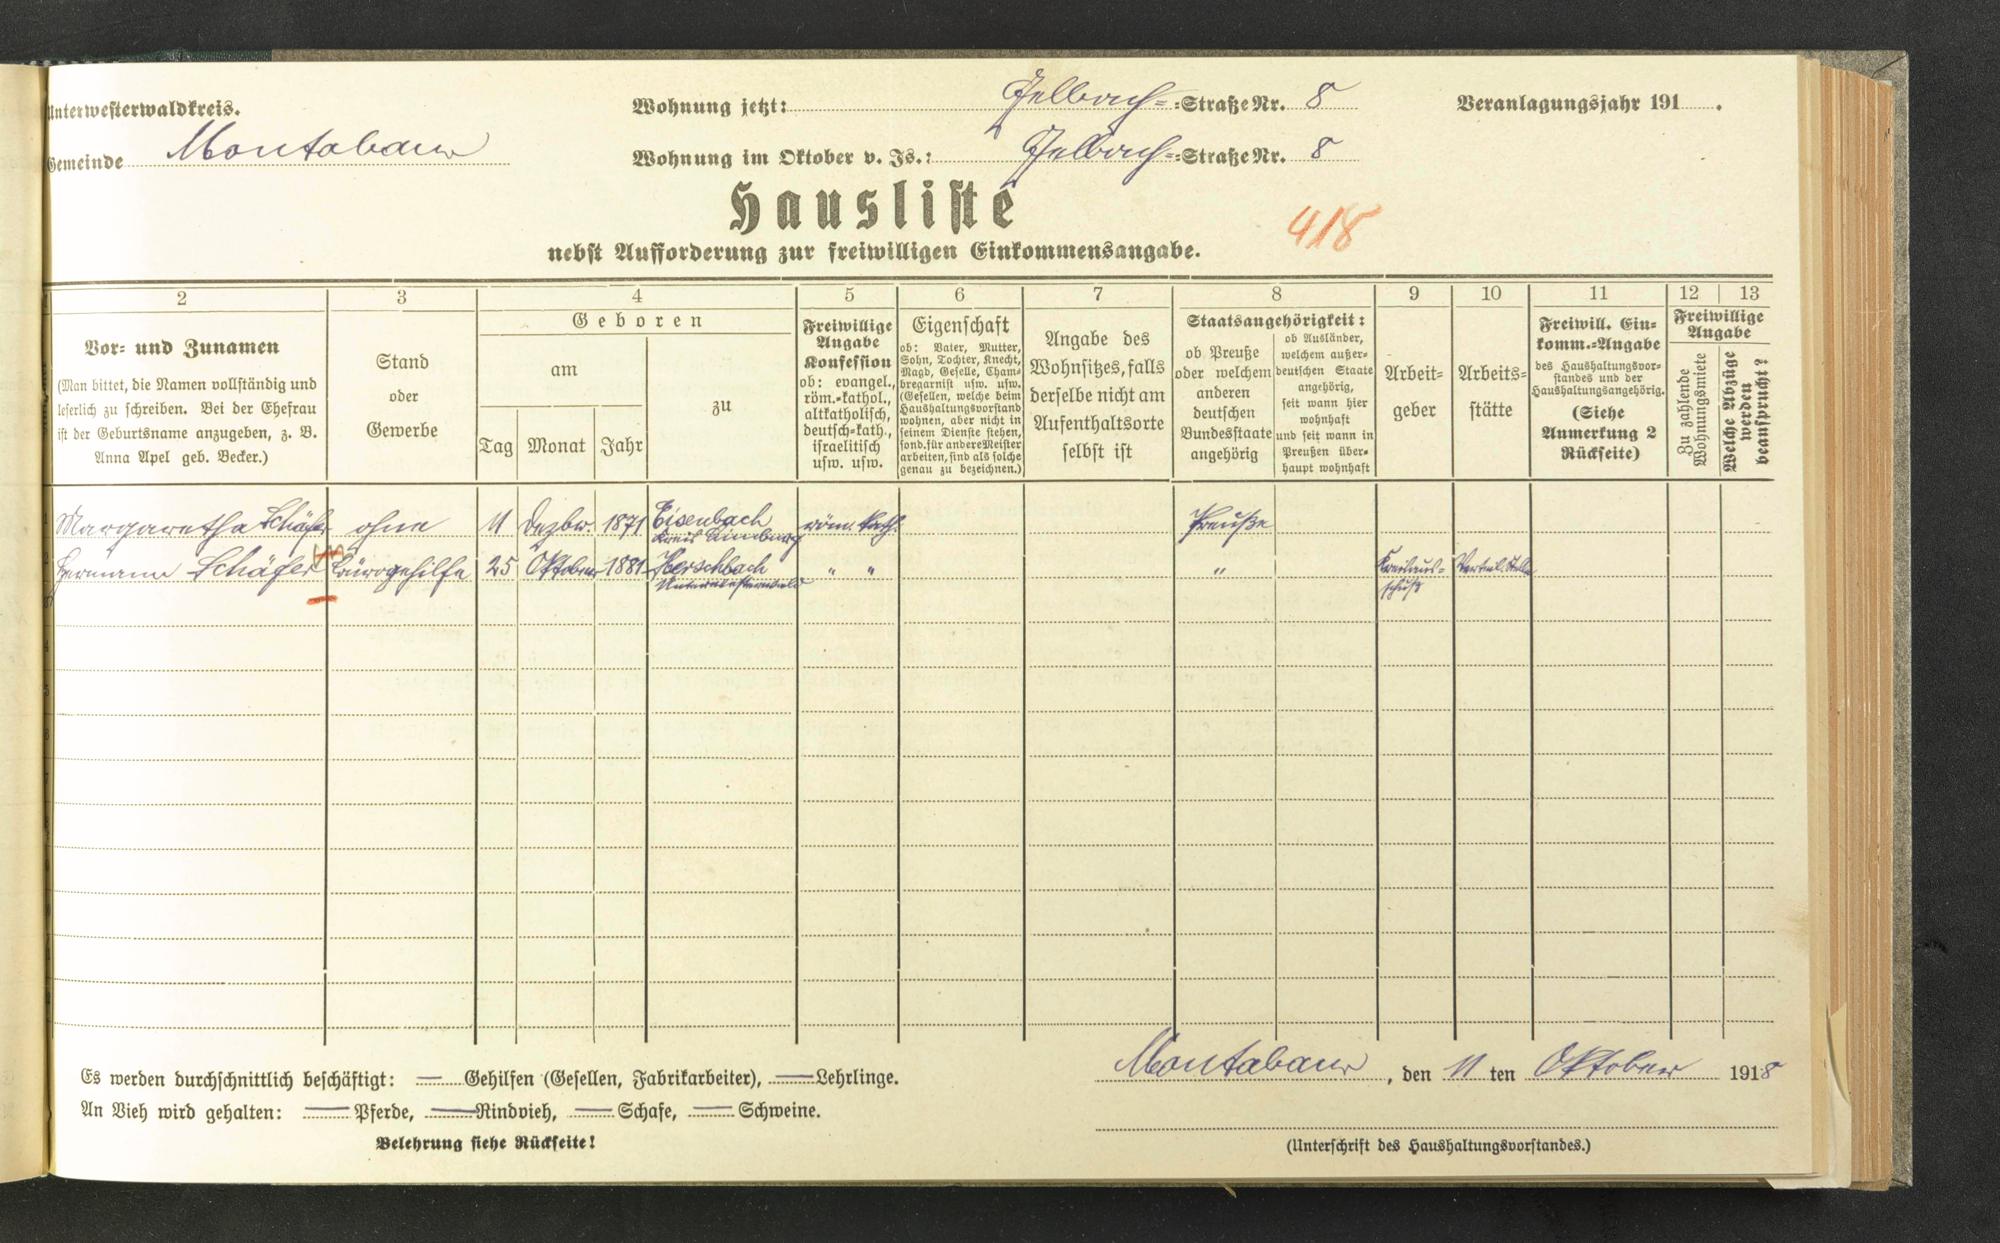 Unterwesterwaldkreis.
Gemeinde Montabaur
Wohnung jetzt: Gelbach= =Straße Nr. 8
Wohnung im Oktober v. Js.: Gelbach= =Straße Nr. 8
Veranlagungsjahr 191 .
Hausliste
418
nebst Aufforderung zur freiwilligen Einkommensangabe.
2 3 4 5 6 7 8 9 10 11 12 13
Vor- und Zunamen
(Man bittet, die Namen vollständig und
leserlich zu schreiben. Bei der Ehefrau
ist der Geburtsname anzugeben, z. B.
Anna Apel geb. Becker.)
Stand
oder
Gewerbe
Geboren
am
Tag Monat Jahr
zu
Freiwillige
Angabe
Konfession
ob: evangel.,
röm.-kathol.,
altkatholisch,
deutsch-kath.,
israelitisch
usw. usw.
Eigenschaft
ob: Vater, Mutter,
Sohn, Tochter, Knecht,
Magd, Geselle, Cham-
bregarnist usw. usw.
(Gesellen, welche beim
Haushaltungsvorstand
wohnen, aber nicht in
seinem Dienste stehen,
sond. für andere Meister
arbeiten, sind als solche
genau zu bezeichnen.)
Angabe des
Wohnsitzes, falls
derselbe nicht am
Aufenthaltsorte
selbst ist
Staatsangehörigkeit:
ob Preuße
oder welchem
anderen
deutschen
Bundesstaate
angehörig
ob Ausländer,
welchem außer-
deutschen Staate
angehörig,
seit wann hier
wohnhaft
und seit wann in
Preußen über-
haupt wohnhaft
Arbeit-
geber
Arbeits-
stätte
Freiwill. Ein-
komm.-Angabe
des Haushaltungsvor-
standes und der
Haushaltungsangehörig.
(Siehe
Anmerkung 2
Rückseite)
Freiwillige
Angabe
Zu zahlende
Wohnungsmiete
Welche Abzüge
werden
beansprucht?
1 Margaretha Schäfer ohne 11 Dezbr. 1871 Eisenbach röm. kath. Preuße
Kreis Limburg
2 Hermann Schäfer Bürogehilfe 25 Oktober 1881 Herschbach " " " Kreisaus- Verteil. Stelle
Unterwesterwald schuß
Es werden durchschnittlich beschäftigt: — Gehilfen (Gesellen, Fabrikarbeiter), — Lehrlinge.
An Vieh wird gehalten: — Pferde, — Rindvieh, — Schafe, — Schweine.
Belehrung siehe Rückseite!
Montabaur, den 11 ten Oktober 1918
(Unterschrift des Haushaltungsvorstandes.)